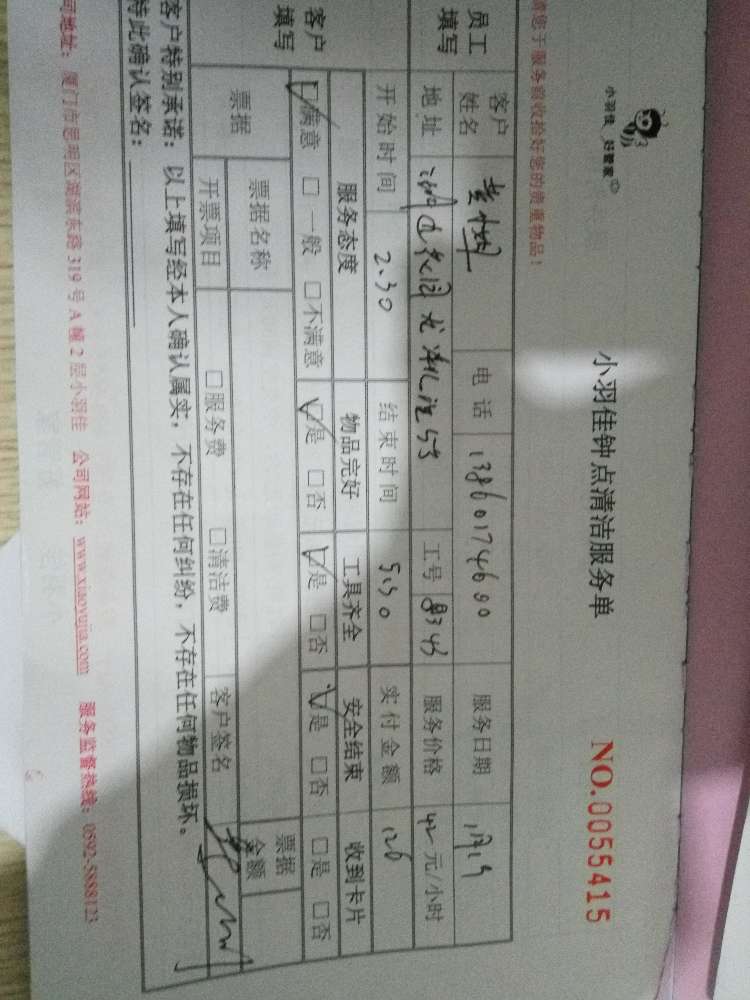 小羽佳 好管家
小羽佳钟点清洁服务单
NO.0055415
请您于服务前收拾好您的贵重物品！
员工填写
客户姓名
电话 13860174600
服务日期
地址
工号
服务价格 42 元/小时
开始时间 2.30
结束时间 5:30
实付金额 126
客户填写
服务态度 物品完好 工具齐全 安全结束 收到卡片
☑满意 □一般 □不满意 ☑是 □否 ☑是 □否 ☑是 □否 □是 □否
票据
票据名称
票据金额
开票项目 □服务费 □清洁费
客户签名
客户特别承诺：以上填写经本人确认属实，不存在任何纠纷，不存在任何物品损坏。
特此确认签名：
司地址：厦门市思明区湖滨东路 319 号 A 幢 2 层小羽佳 公司网站：www.xiaoyujia.com 服务监督热线：0592-5888123